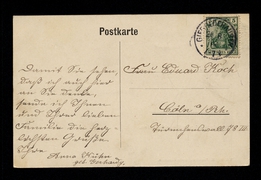 Postkarte
Damit Sie sehen,
daß ich auch hier
an Sie denke,
sende ich Ihnen
und Ihrer lieben
Familie die herz-
lichsten Grüße
Ihre
Anna Kühn
geb.
Frau Eduard Koch
Cöln a/Rh.